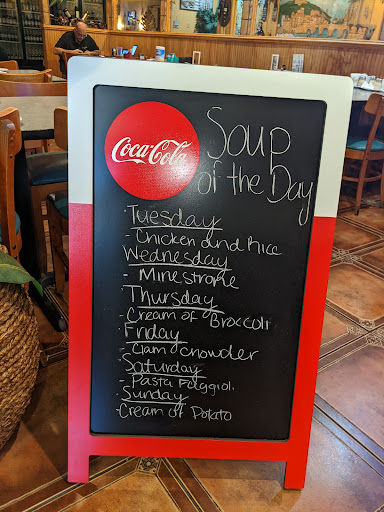 Coca-Cola
Soup
of the Day
·Tuesday
-Chicken and Rice
Wednesday
- Minestrone
Thursday
-Cream of Broccoli
Friday
-Clam Chowder
Saturday
-Pasta Faggioli
·Sunday
-Cream of Potato